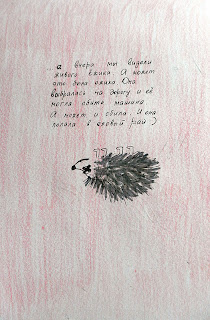 ...а вчера мы видели
живого ёжика. А может
это была ежиха. Она
выбралась на дорогу и её
могла сбить машина
А может и сбила. И она
попала в ежовый рай :)